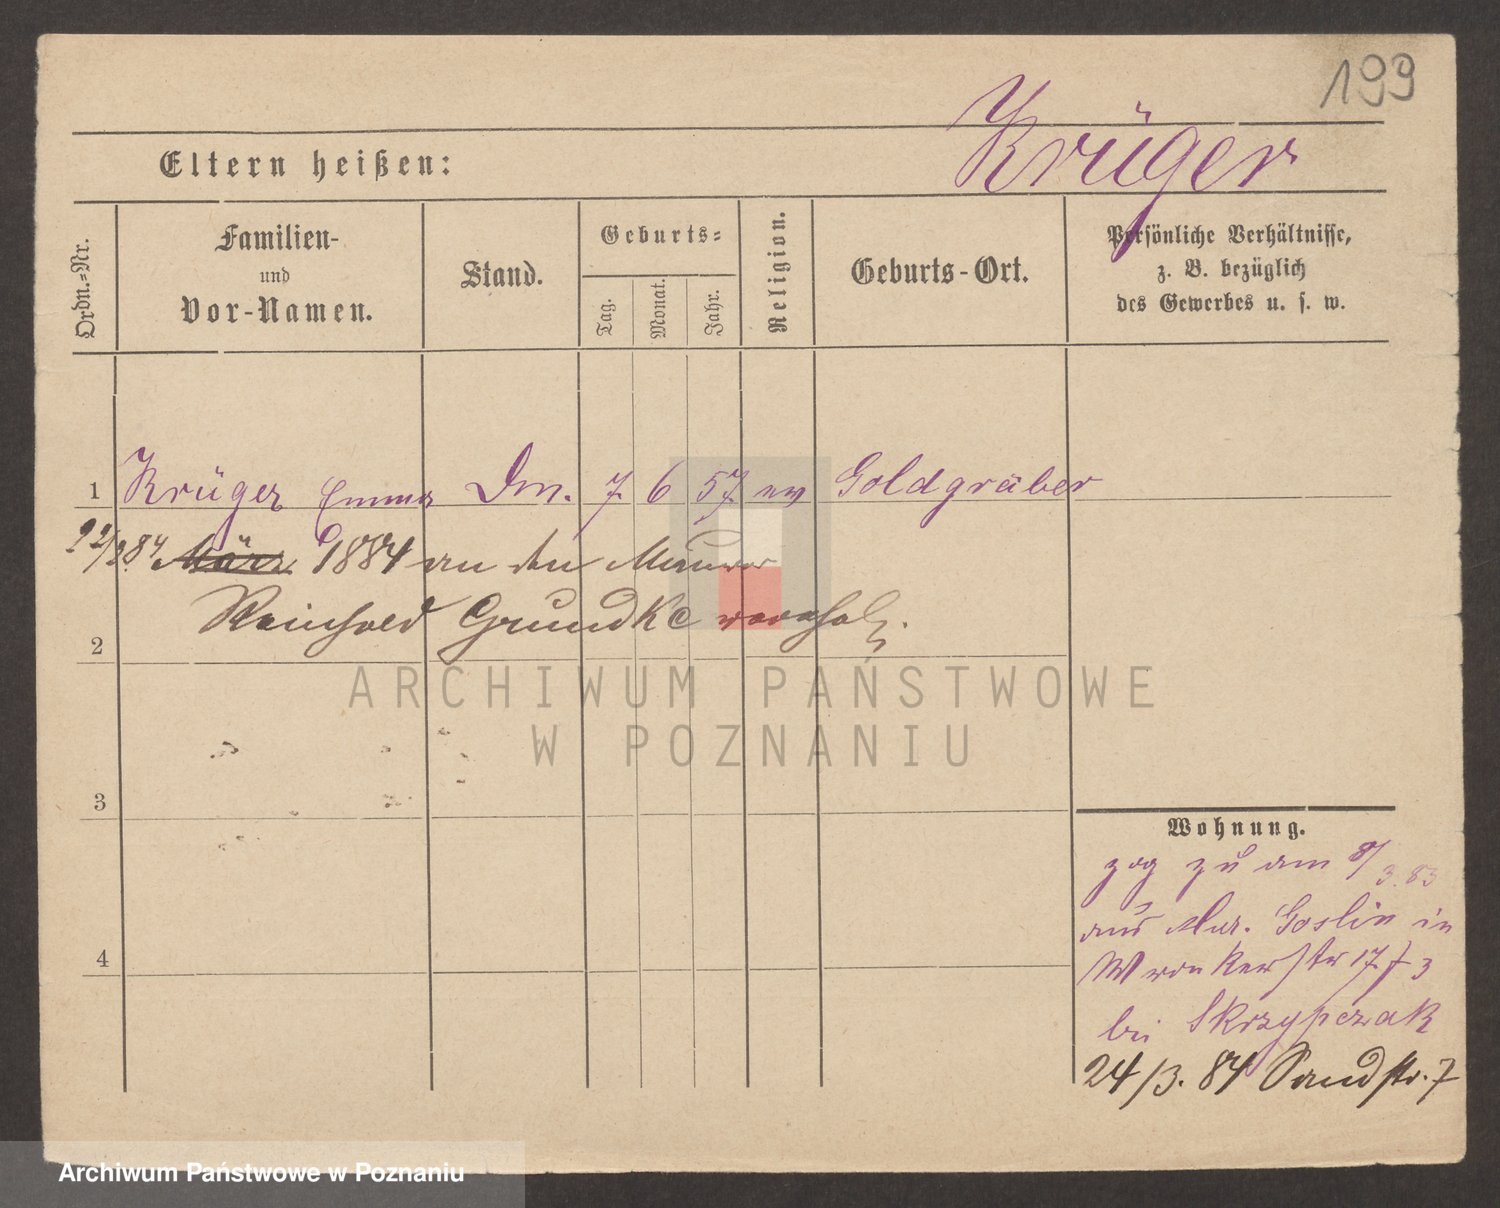 199
Krüger
Eltern heißen:
Ordn.-Nr.
Familien-
und
Vor-Namen.
Stand.
Geburts-
Tag.
Monat.
Jahr.
Religion.
Geburts-Ort.
Persönliche Verhältnisse,
z. B. bezüglich
des Gewerbes u. s. w.
1 Krüger Emma Dm. 7 6 57 ev Goldgräber
März 1884 an den Maurer
Reinhold Grundke verehel.
2
3
4
ARCHIWUM PAŃSTWOWE
W POZNANIU
Wohnung.
zog zu am 8/3.83
aus Mur. Goslin in
Wronkerstr 17 f 3
bei Skrzypczak
24/3. 84 Sandstr. 7
Archiwum Państwowe w Poznaniu